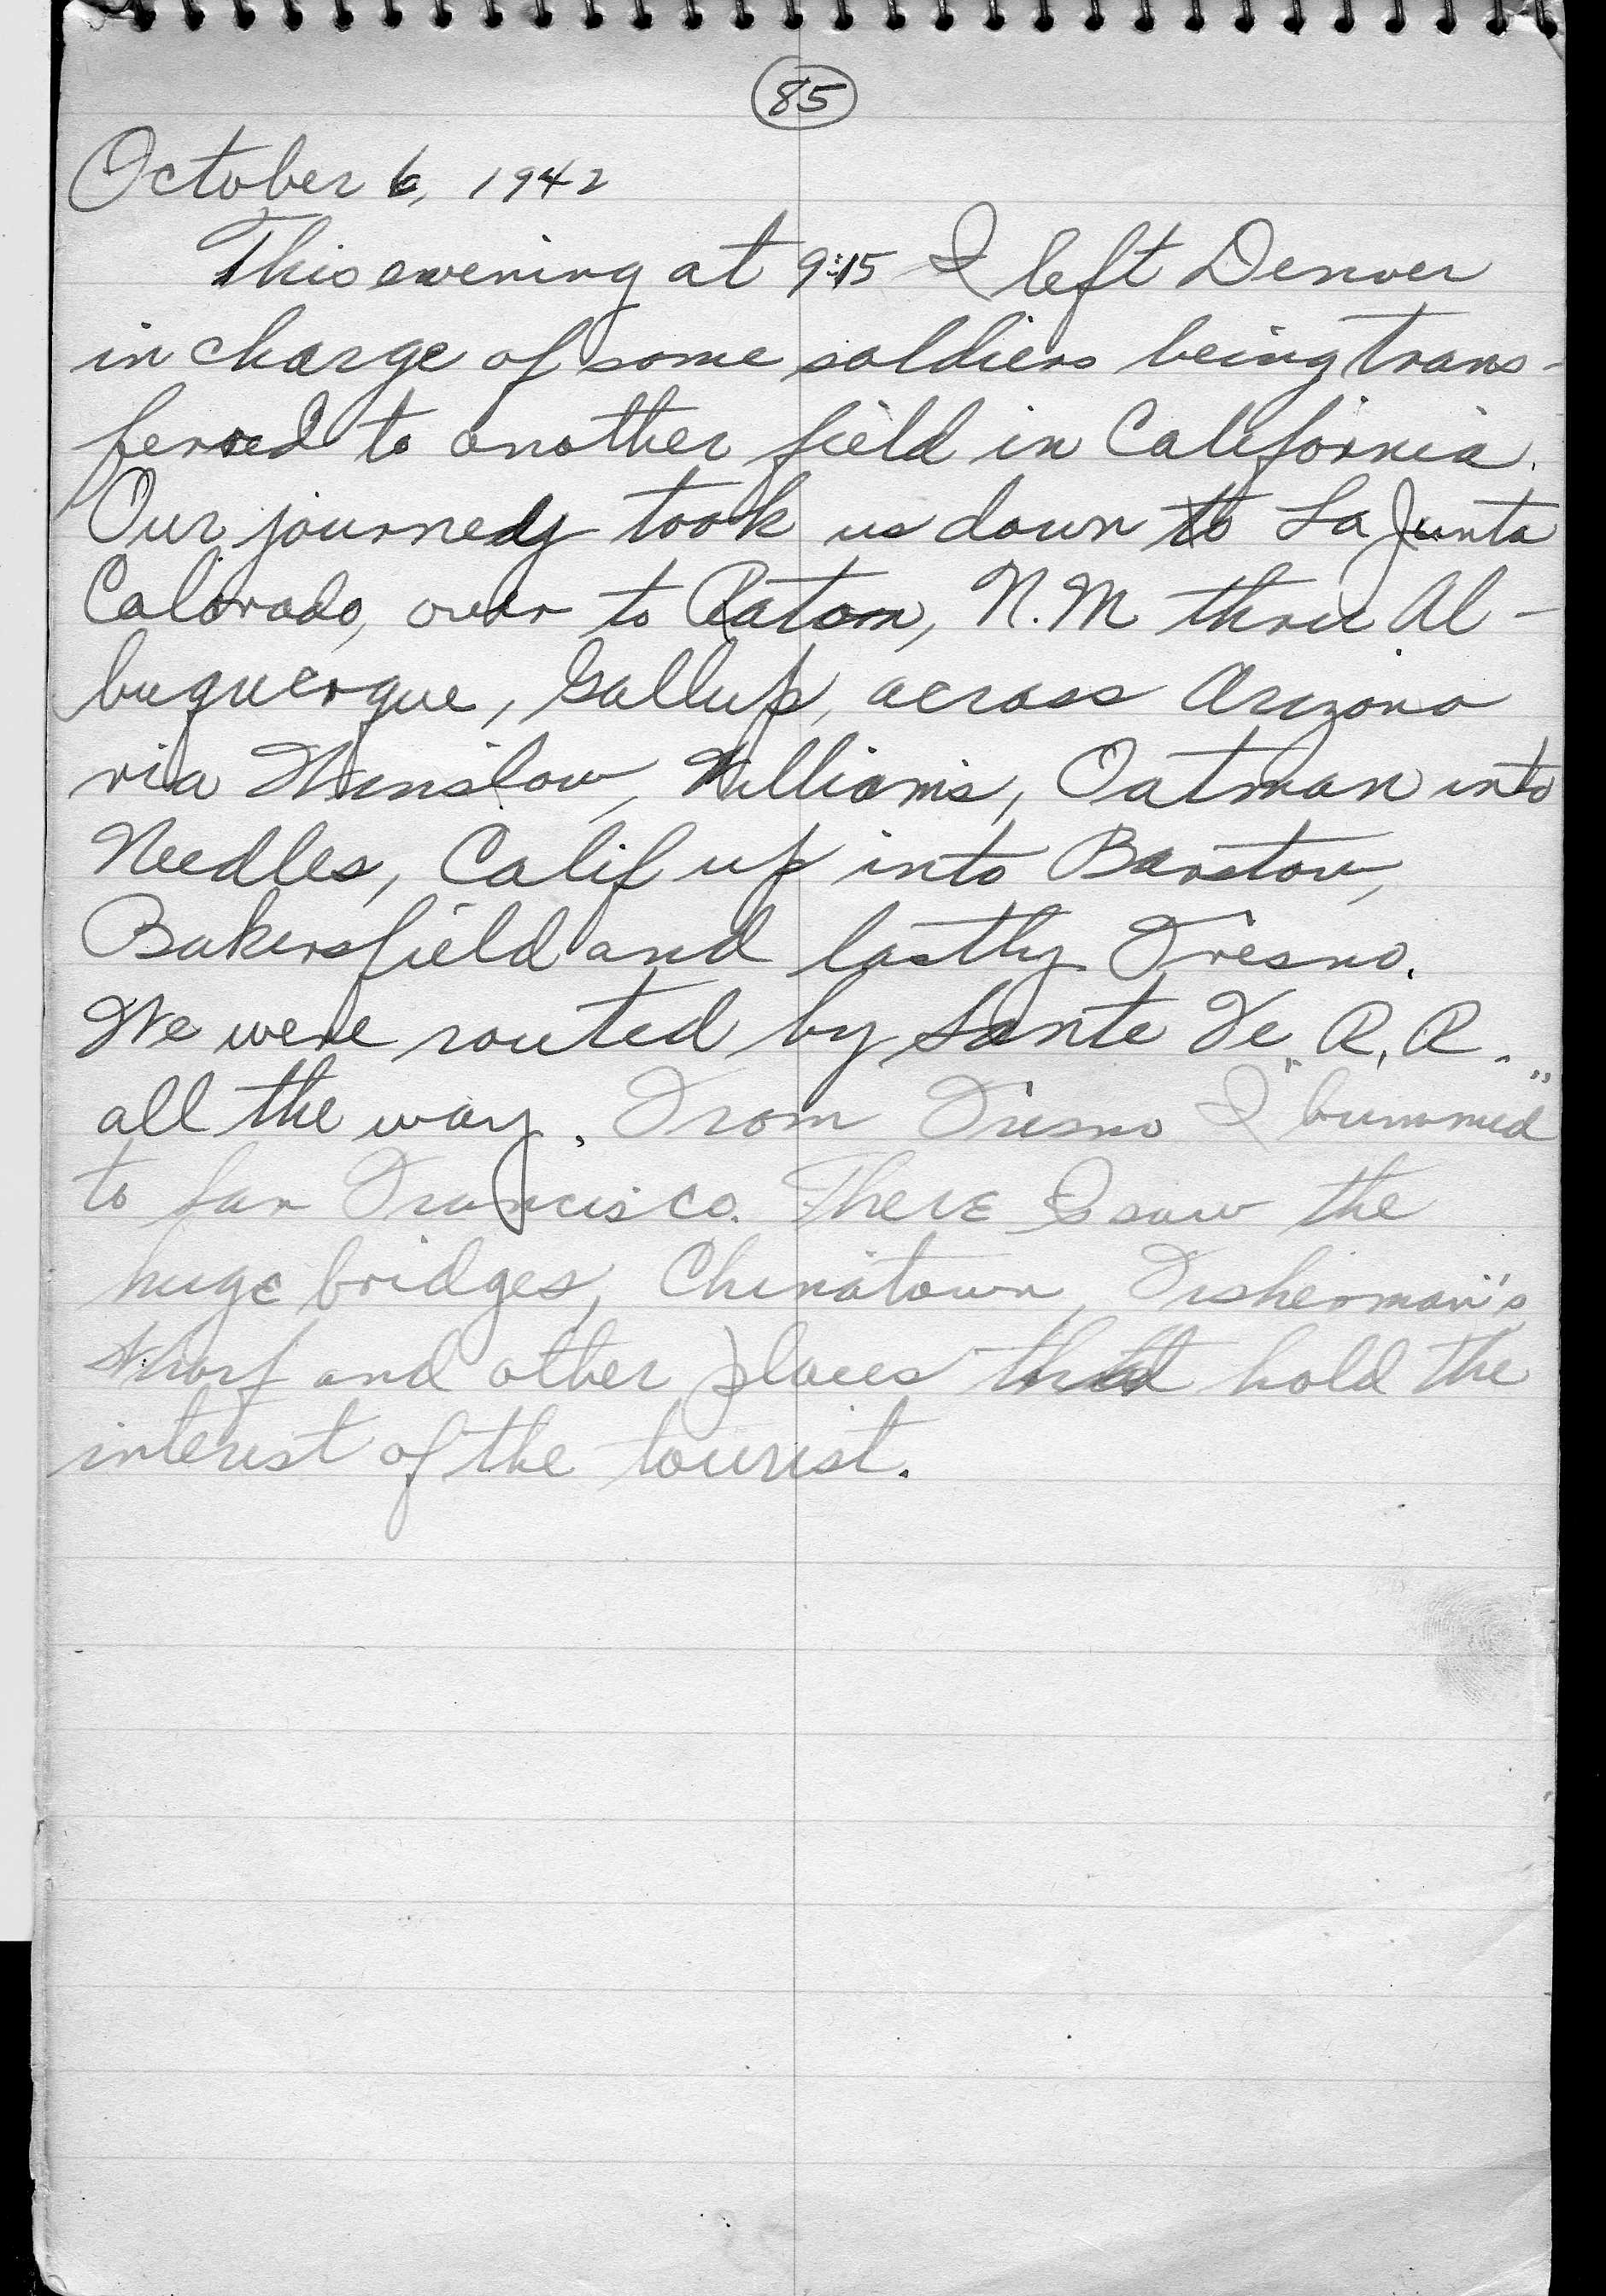 85
October 6, 1942
This evening at 9:15 I left Denver
in charge of some soldiers being trans-
ferred to another field in California.
Our journey took us down to La Junta
Colorado, over to Raton, N.M thru Al-
buquerque, Gallup, across Arizona
via Winslow, Williams, Oatman into
Needles, Calif up into Barstow,
Bakersfield and lastly Fresno.
We were routed by Sante Fe R.R.
all the way. From Fresno I "bummed"
to San Francisco. There I saw the
huge bridges, Chinatown, Fisherman's
Wharf and other places that hold the
interest of the tourist.